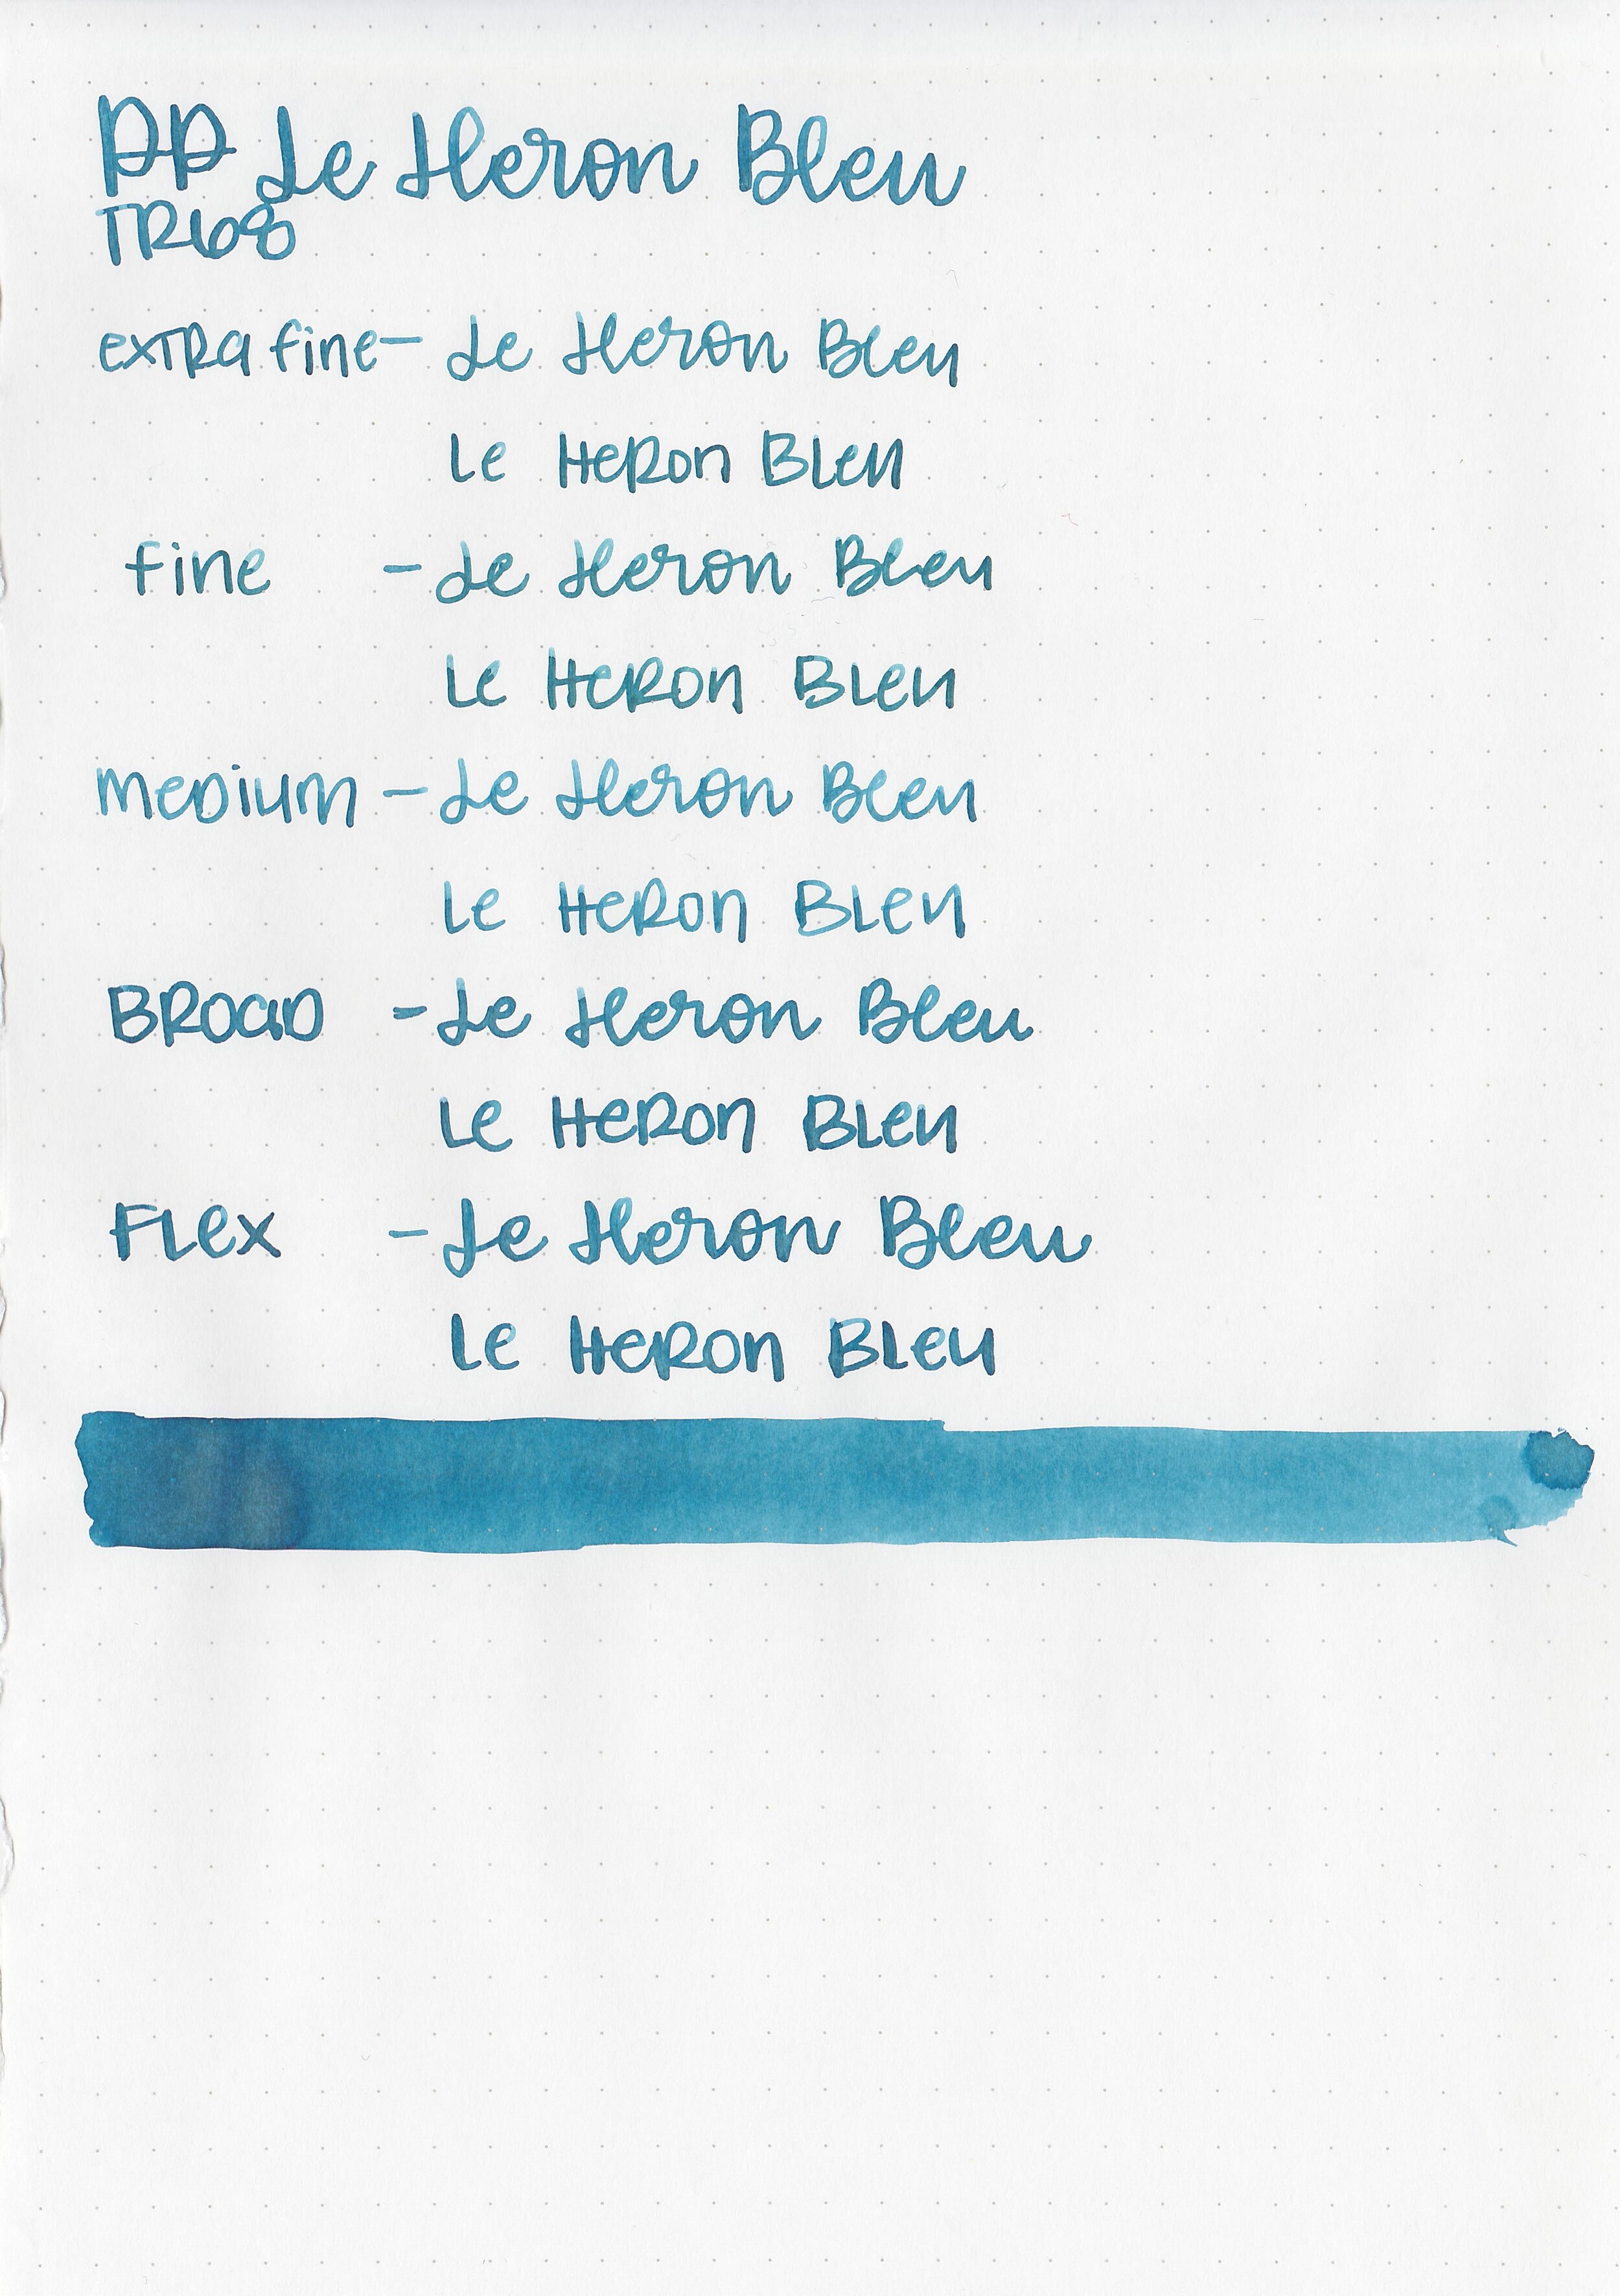 PP Le Heron Bleu
TR68
extra fine - Le Heron Bleu
Le Heron Bleu
fine - Le Heron Bleu
Le Heron Bleu
medium - Le Heron Bleu
Le Heron Bleu
Broad - Le Heron Bleu
Le Heron Bleu
Flex - Le Heron Bleu
Le Heron Bleu